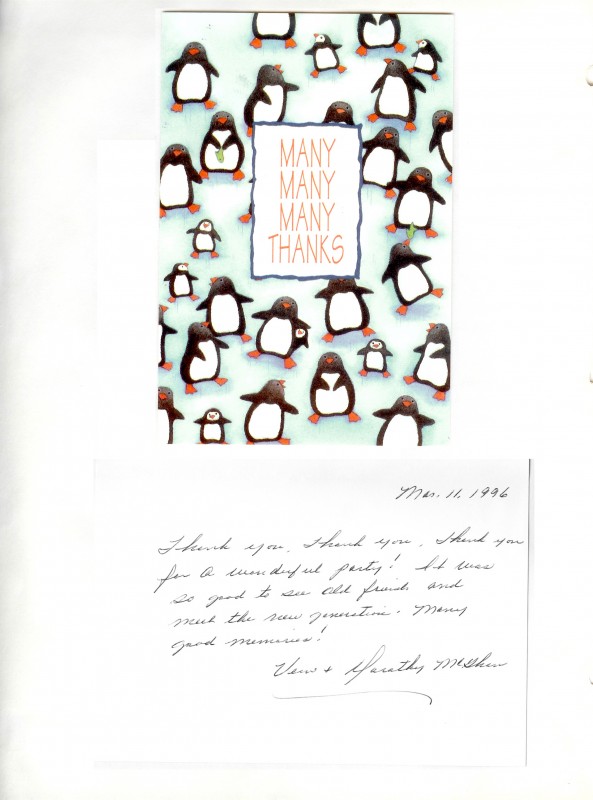 MANY
MANY
MANY
THANKS
Mar. 11, 1996
Thank you, Thank you, Thank you
for a wonderful party! It was
so good to see old friends and
meet the new generation. Many
good memories!
Vern + Dorothy